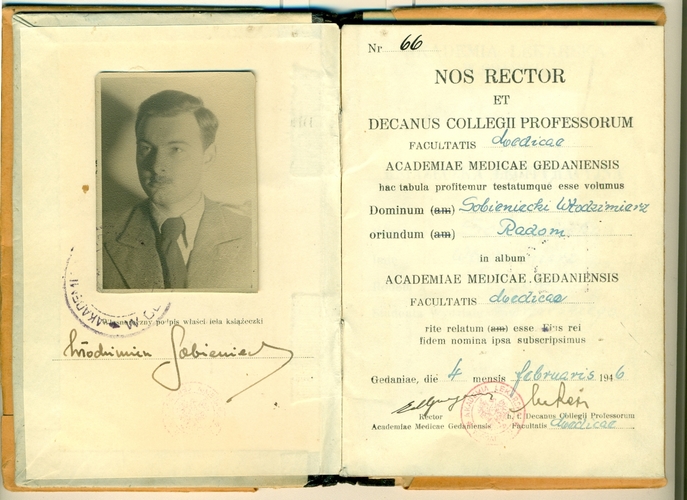 własnoręczny podpis właściciela książeczki
Włodzimierz Sobieniecki
Nr 66
NOS RECTOR
ET
DECANUS COLLEGII PROFESSORUM
FACULTATIS Medicae
ACADEMIAE MEDICAE GEDANIENSIS
hac tabula profitemur testatumque esse volumus
Dominum (am) Sobieniecki Włodzimierz
oriundum (am) Radom
in album
ACADEMIAE MEDICAE GEDANIENSIS
FACULTATIS Medicae
rite relatum (am) esse Eius rei
fidem nomina ipsa subscripsimus
Gedaniae, die 4 mensis februaris 1946
Rector h. t. Decanus Collegii Professorum
Academiae Medicae Gedaniensis Facultatis Medicae